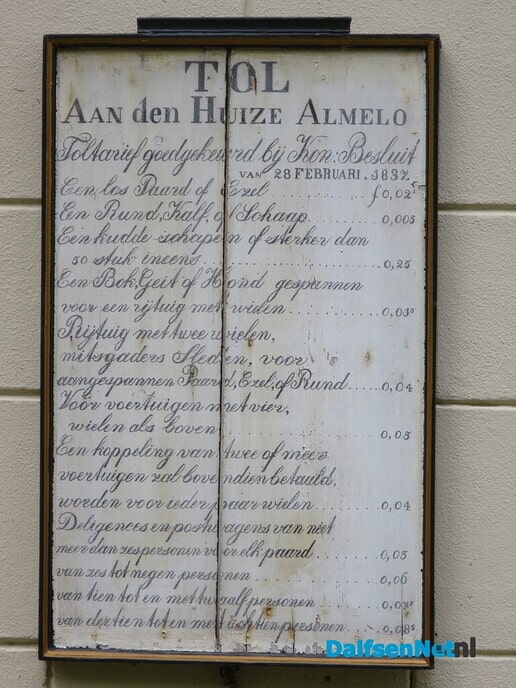 TOL
AAN den HUIZE ALMELO
Toltarief goedgekeurd bij Kon: Besluit
VAN 28 FEBRUARI. 1837.
Een los Paard of Ezel f 0,02⁵
Een Rund, Kalf, of Schaap......0,005
Een kudde schapen of sterker dan
50 stuk ineens......0,25
Een Bok, Geit of Hond gespannen
voor een rijtuig met wielen......0,03⁵
Rijtuig met twee wielen,
mitsgaders Sleden, voor
aangespannen Paard, Ezel, of Rund......0,04
Voor voertuigen met vier,
wielen als boven......0,05
Een koppeling van twee of meer
voertuigen zal bovendien betaald,
worden voor ieder paar wielen......0,04
Deligences en postwagens van niet
meer dan zes personen voor elk paard......0,05
van zes tot negen personen......0,06
van tien tot en met twaalf personen......0,07⁵
van dertien tot en met achtien personen......0,08⁵
DalfsenNet.nl